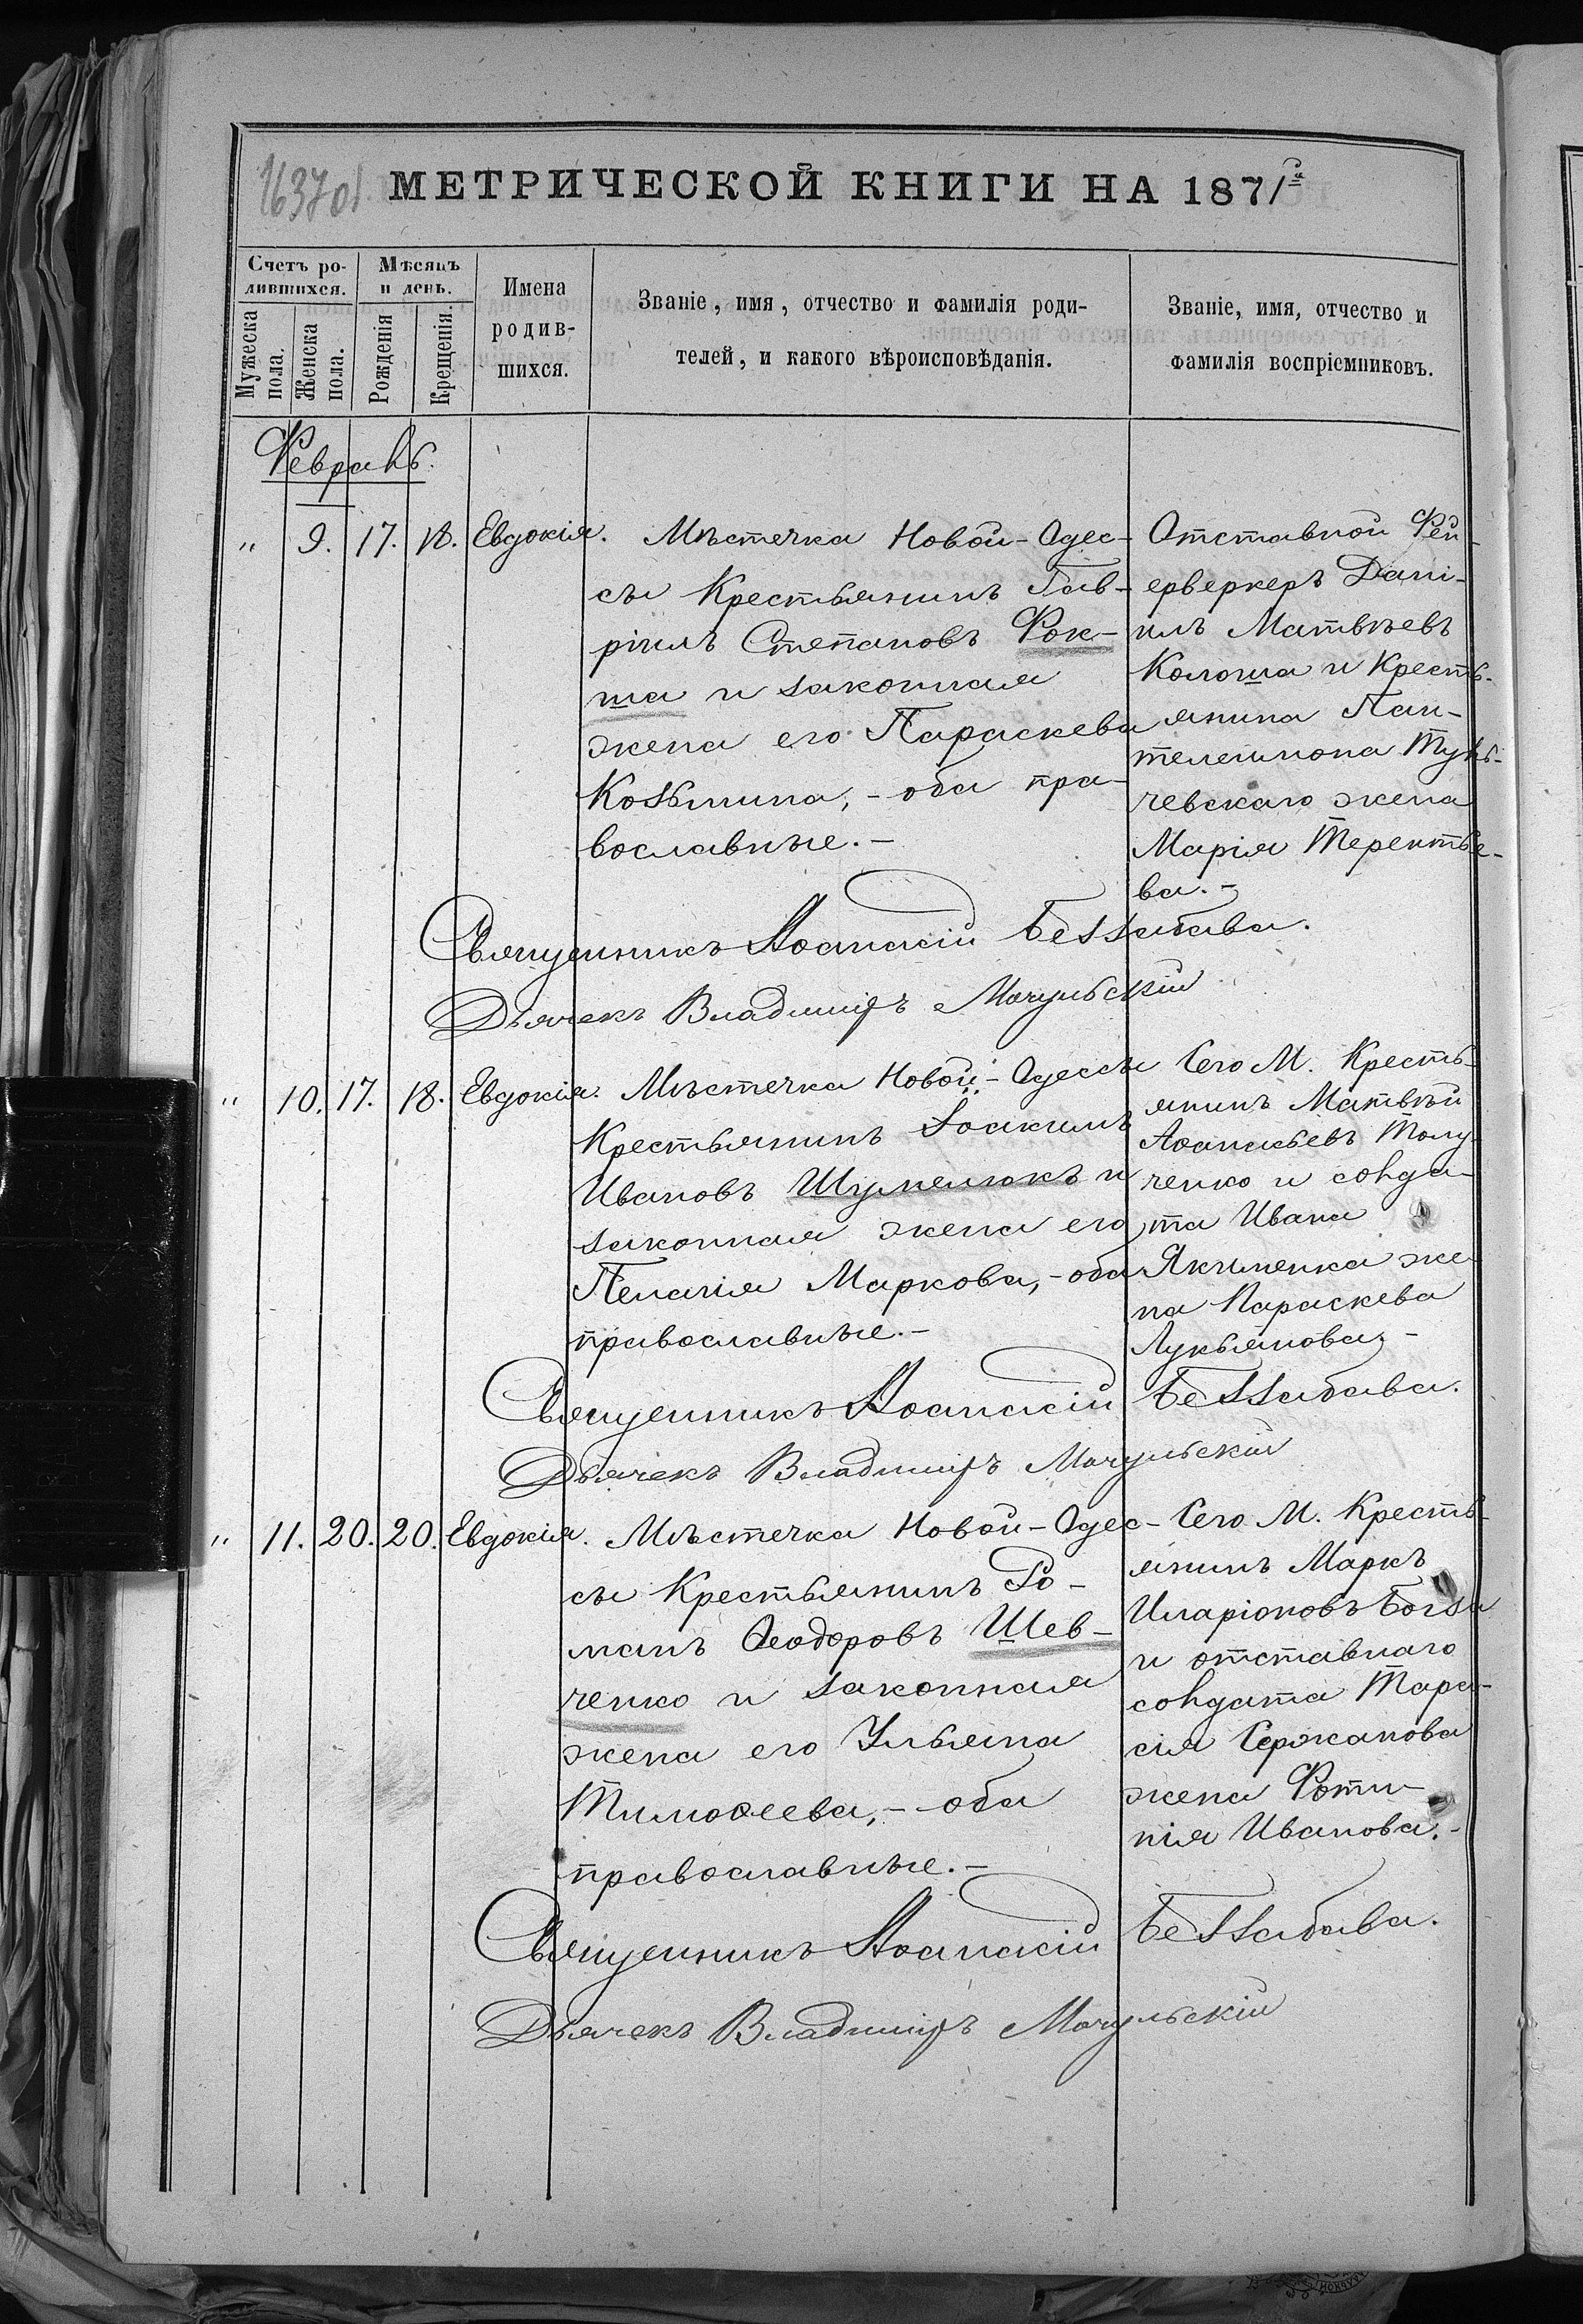 163701
МЕТРИЧЕСКОЙ КНИГИ НА 1871й
Счетъ ро-
дившихся.
Мѣсяцъ
и день.
Мужеска
пола.
Женска
пола.
Рожденія
Крещенія.
Имена
родив-
шихся.
Званіе, имя, отчество и фамилія роди-
телей, и какого вѣроисповѣданія.
Званіе, имя, отчество и
фамилія воспріемниковъ.
Февраль.
„ 9. 17. 18. Евдокія.
Мѣстечка Новой-Одес-
сы Крестьянинъ Гав-
ріилъ Степановъ Фок-
ша и законная
жена его Параскева
Козьмина, - оба пра-
вославные. -
Отставной Фей-
ерверкеръ Дани-
илъ Матвѣевъ
Колоша и Кресть-
янина Пан-
телеимона Туль-
чевскаго жена
Марія Терентье-
ва. -
Священникъ Аѳанасій Беззабава.
Дьячекъ Владиміръ Мочульскій
„ 10. 17. 18. Евдокія.
Мѣстечка Новой-Одессы
Крестьянинъ Іоакимъ
Ивановъ Шумелюкъ и
законная жена его
Пелагія Маркова, - оба
православные. -
Сего М. Кресть-
янинъ Матвѣй
Аѳанасьевъ Толу-
ченко и солда-
та Ивана
Якименка же-
на Параскева
Лукьянова. -
Священникъ Аѳанасій Беззабава.
Дьячекъ Владиміръ Мочульскій
„ 11. 20. 20. Евдокія.
Мѣстечка Новой-Одес-
сы Крестьянинъ Ро-
манъ Ѳеодоровъ Шев-
ченко и законная
жена его Ульяна
Тимоѳеева, - оба
православные. -
Сего М. Кресть-
янинъ Маркъ
Иларіоновъ Богза
и отставнаго
солдата Тара-
сія Сержанова
жена Фоти-
нія Иванова. -
Священникъ Аѳанасій Беззабава.
Дьячекъ Владиміръ Мочульскій